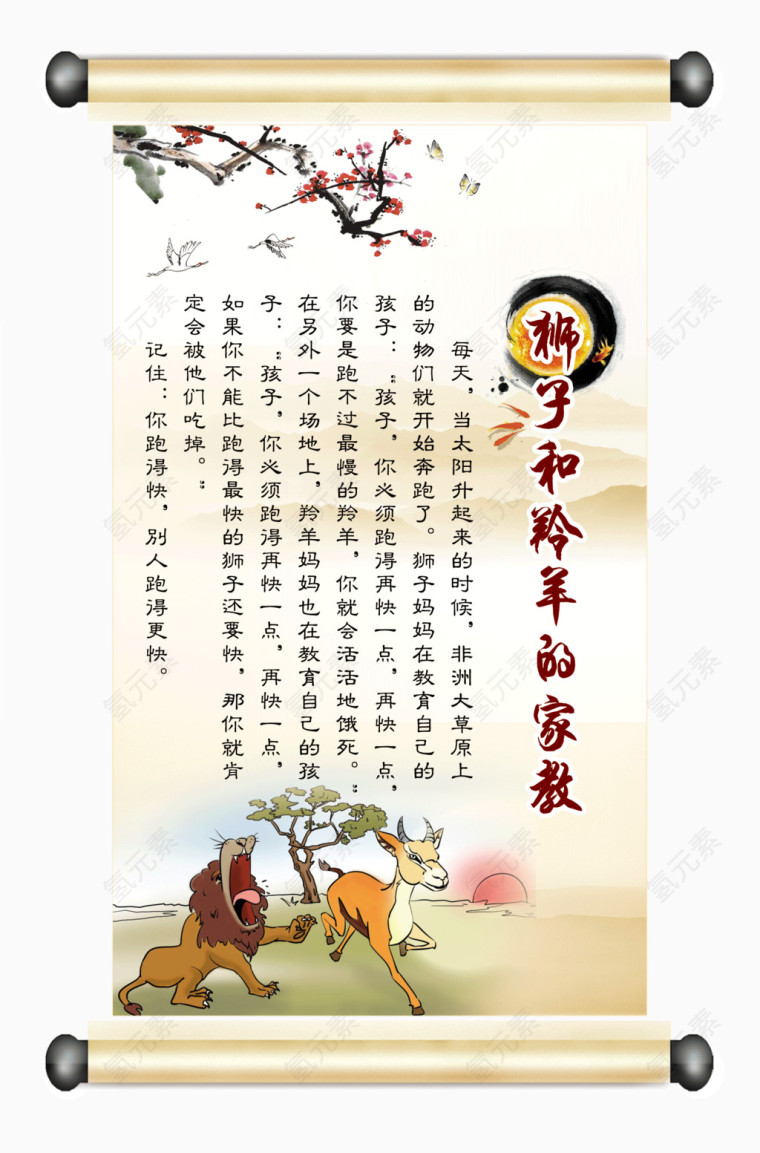 狮子和羚羊的家教
每天，当太阳升起来的时候，非洲大草原上
的动物们就开始奔跑了。狮子妈妈在教育自己的
孩子：“孩子，你必须跑得再快一点，再快一点，
你要是跑不过最慢的羚羊，你就会活活地饿死。”
在另外一个场地上，羚羊妈妈也在教育自己的孩
子：“孩子，你必须跑得再快一点，再快一点，
如果你不能比跑得最快的狮子还要快，那你就肯
定会被他们吃掉。”
记住：你跑得快，别人跑得更快。
氢元素